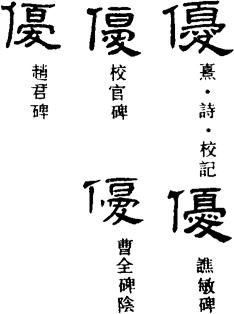 優
熹・詩・校記
優
校官碑
優
趙君碑
優
譙敏碑
優
曹全碑陰